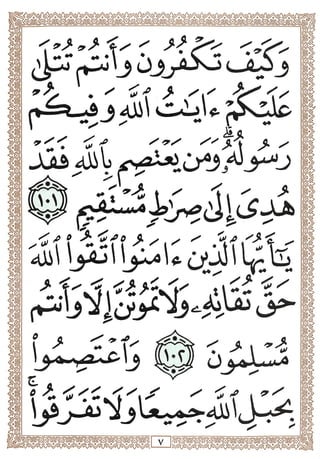 وَكَيْفَ تَكْفُرُونَ وَأَنتُمْ تُتْلَىٰ
عَلَيْكُمْ ءَايَـٰتُ ٱللَّهِ وَفِيكُمْ
رَسُولُهُۥ ۗ وَمَن يَعْتَصِم بِٱللَّهِ فَقَدْ
هُدِىَ إِلَىٰ صِرَٰطٍ مُّسْتَقِيمٍ ١٠١
يَـٰٓأَيُّهَا ٱلَّذِينَ ءَامَنُوا۟ ٱتَّقُوا۟ ٱللَّهَ
حَقَّ تُقَاتِهِۦ وَلَا تَمُوتُنَّ إِلَّا وَأَنتُم
مُّسْلِمُونَ ١٠٢ وَٱعْتَصِمُوا۟
بِحَبْلِ ٱللَّهِ جَمِيعًا وَلَا تَفَرَّقُوا۟ ۚ
٧